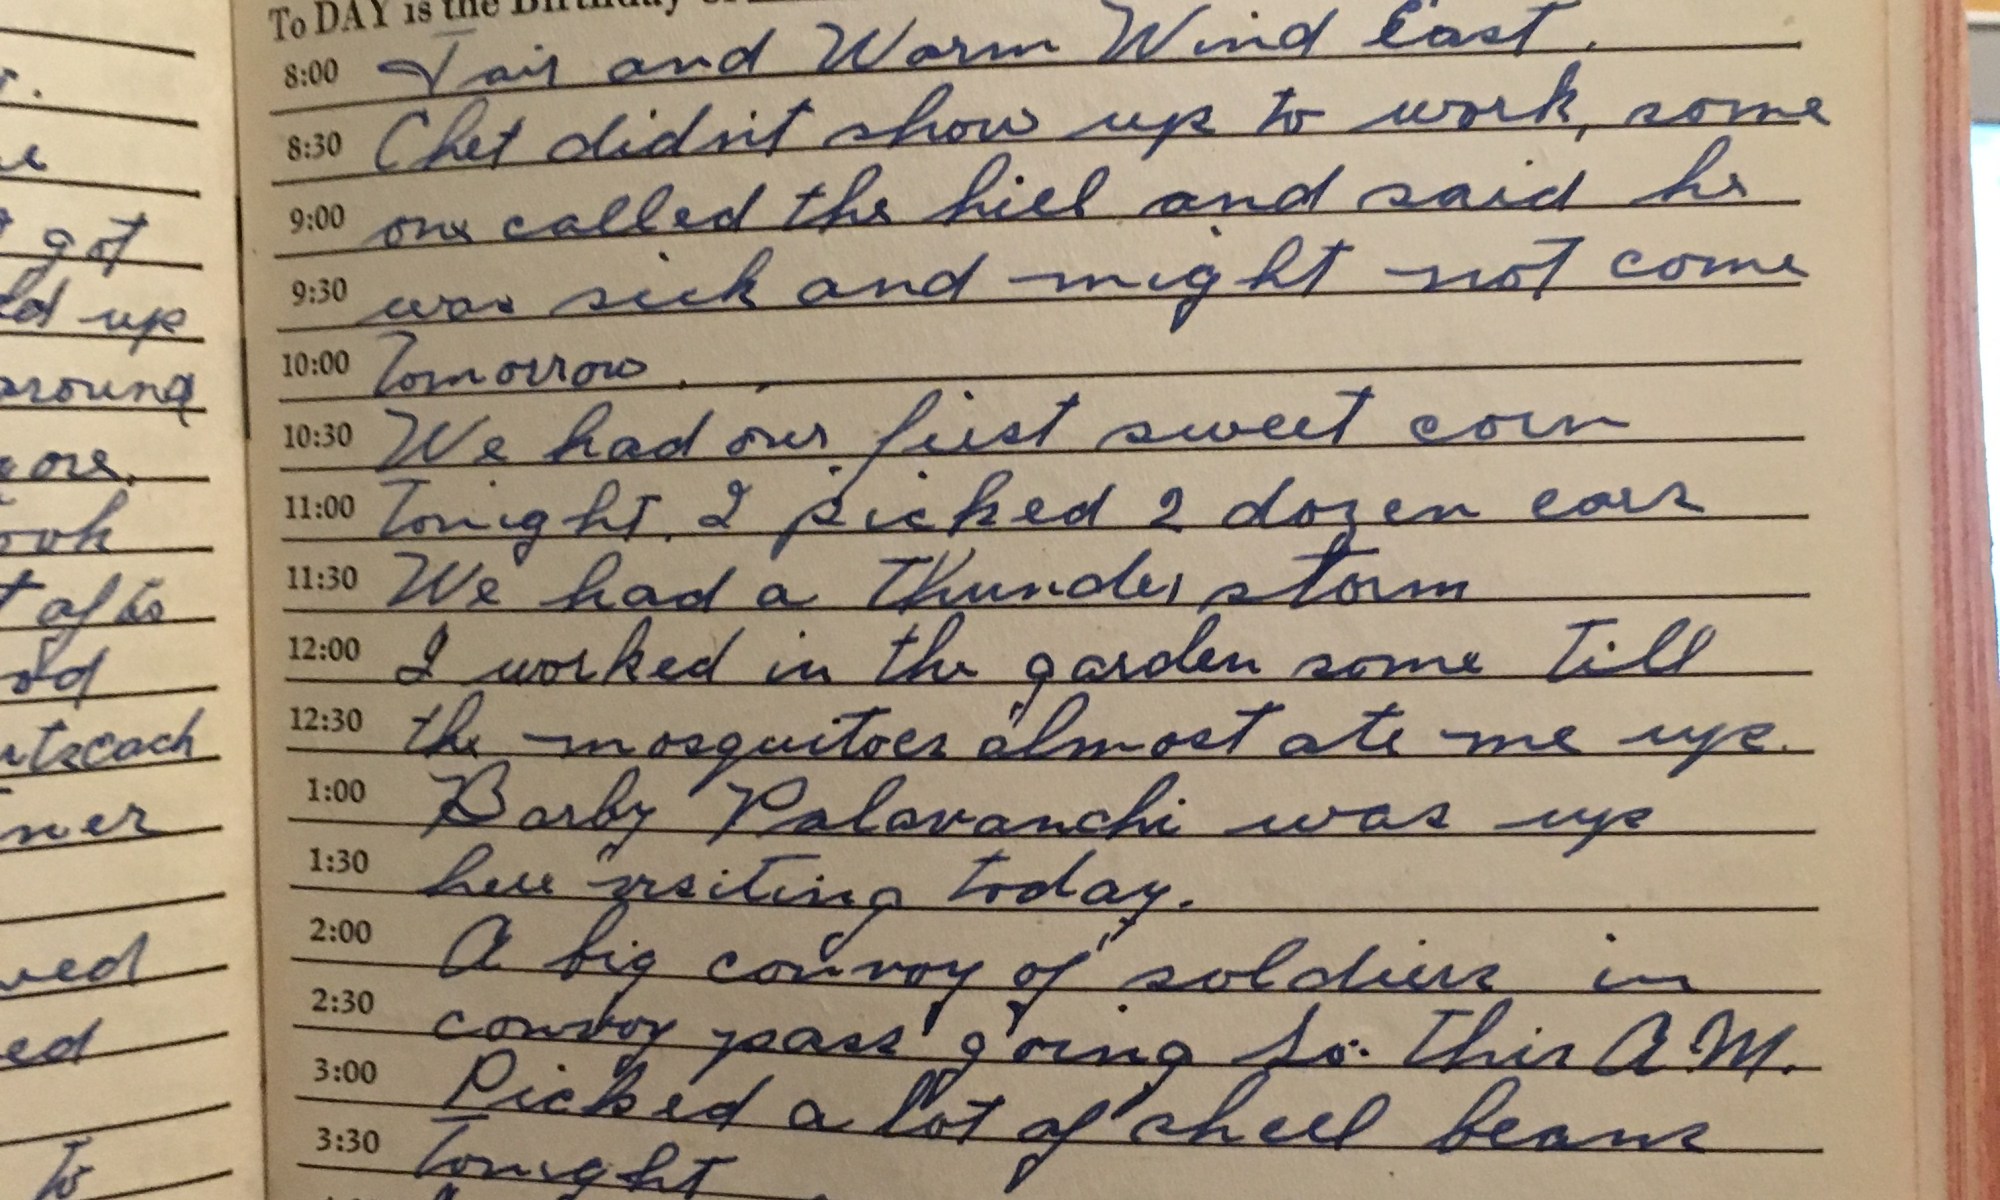 To DAY is the Birthday
8:00 Fair and Warm Wind East.
8:30 Chet didn't show up to work, some
9:00 one called the hill and said he
9:30 was sick and might not come
10:00 Tomorrow.
10:30 We had our first sweet corn
11:00 Tonight. I picked 2 dozen ears
11:30 We had a Thunder storm
12:00 I worked in the garden some Till
12:30 the mosquitoes almost ate me up.
1:00 Barby Palavanchi was up
1:30 here visiting today.
2:00 A big convoy of soldiers in
2:30 convoy pass going So. This A.M.
3:00 Picked a lot of shell beans
3:30 Tonight
got
up
around
ore.
ook
of to
od
ner
ved
ed
To